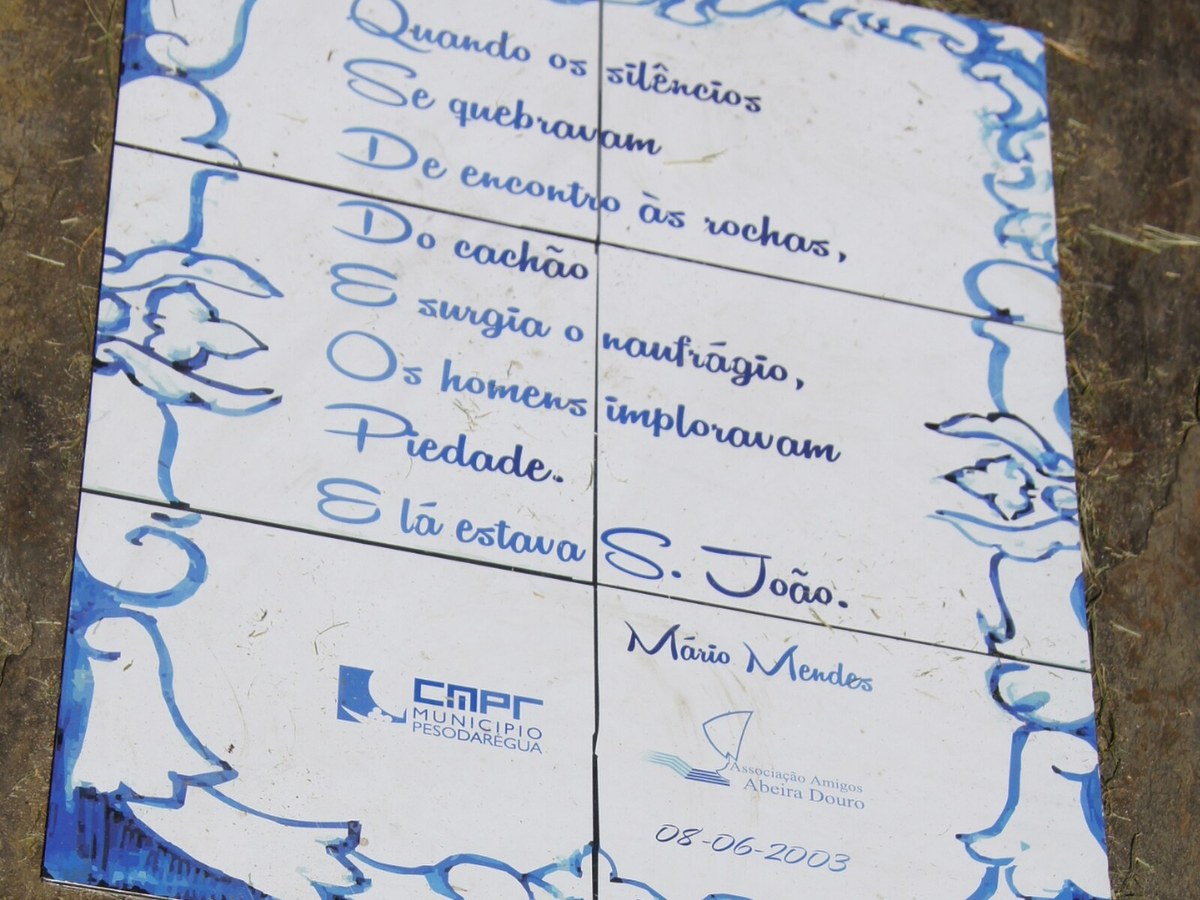 Quando os silêncios
Se quebravam
De encontro às rochas,
Do cachão
E surgia o naufrágio,
Os homens imploravam
Piedade.
E lá estava S. João.
Mário Mendes
CMPR
MUNICIPIO
PESODARÉGUA
Associação Amigos
Abeira Douro
08-06-2003